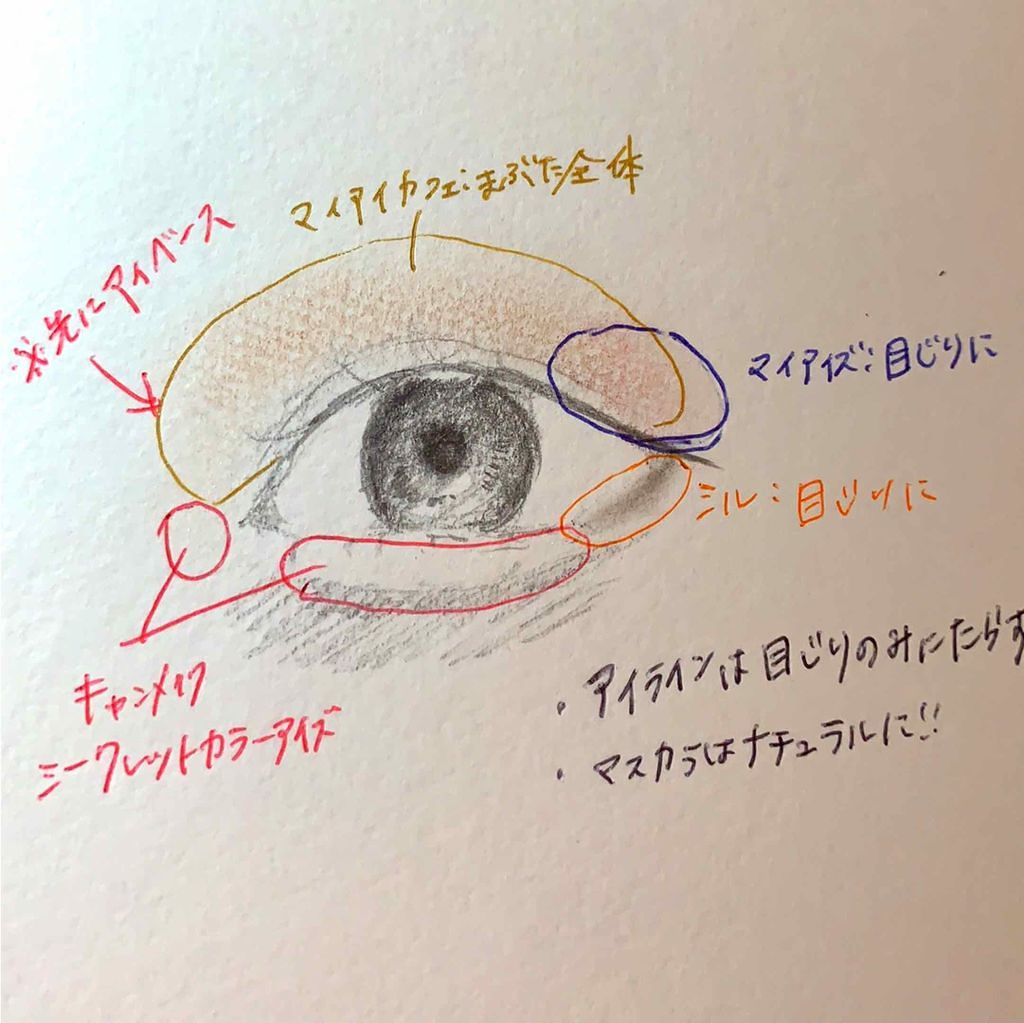 マイアイカフェ:まぶた全体
※先にアイベース
マイアイズ:目じりに
ミル:目じりに
キャンメイク
シークレットカラーアイズ
・アイラインは目じりのみにたらす
・マスカラはナチュラルに!!